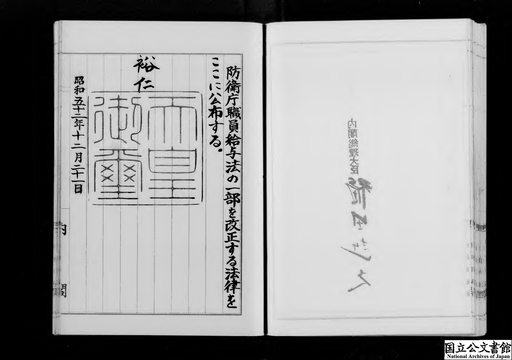 防衛庁職員給与法の一部を改正する法律を
ここに公布する。
裕仁
天皇
御璽
昭和五十二年十二月二十一日
内閣
内閣総理大臣
福田赳夫
国立公文書館
National Archives of Japan